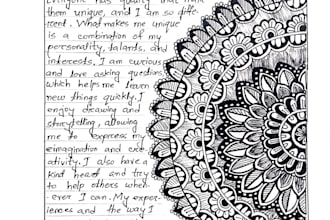 Everyone has quality that make
them unique, and I am so diffe-
rent. What makes me unique
is a combination of my
personality, talants, and
interests. I am curious
and love asking questions,
which helps me learn
new things quickly. I
enjoy drawing and
storytelling, allowing
me to express my
eimagination and cre-
ativity. I also have a
kind heart and try
to help others when-
ever I can. My exper-
iences and the way I